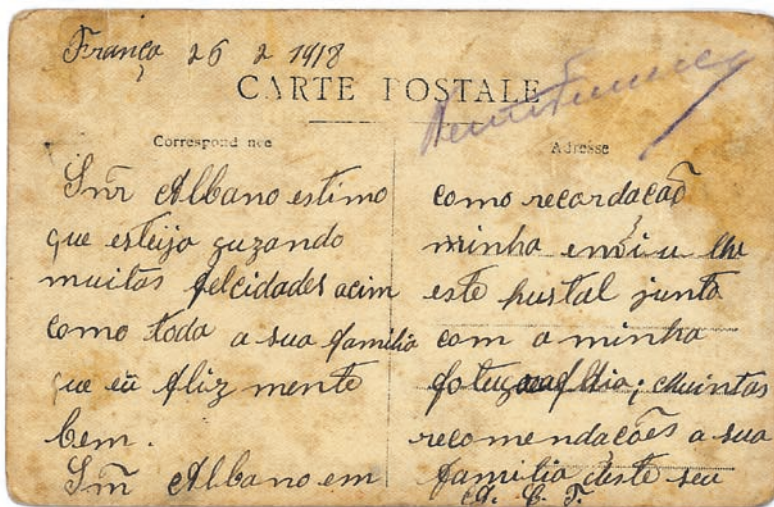 França 26 2 1918
CARTE POSTALE
Correspond nce
Adresse
Snr Albano estimo
que esteijo guzando
muitas felcidades acim
como toda a sua familia
que eu fliz mente
bem.
Snr Albano em
como recordação
minha enviu lhe
este pustal junto
com a minha
muintas
recomendações a sua
familia deste seu
A. C. T.